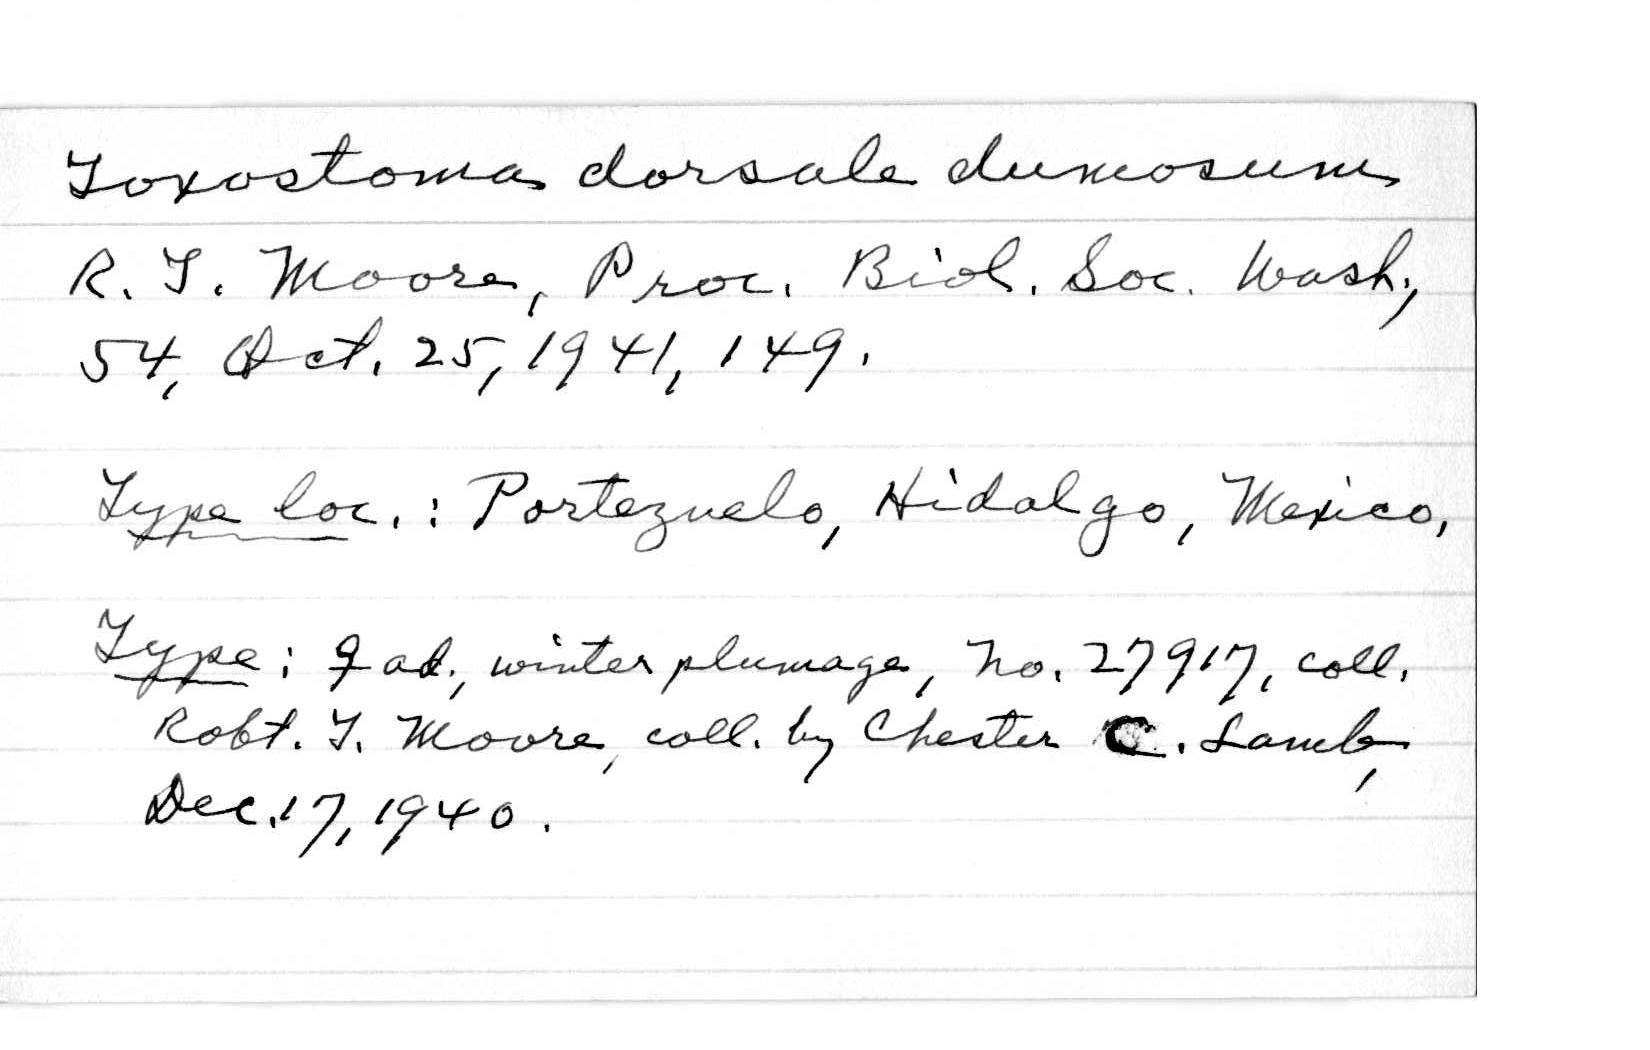 Toxostoma dorsale dumosum
R. T. Moore, Proc. Biol. Soc. Wash.,
54, Oct. 25, 1941, 149.
Type loc.: Portezuelo, Hidalgo, Mexico,
Type: ♀ ad., winter plumage, No. 27917, coll.
Robt. T. Moore, coll. by Chester C. Lamb,
Dec. 17, 1940.